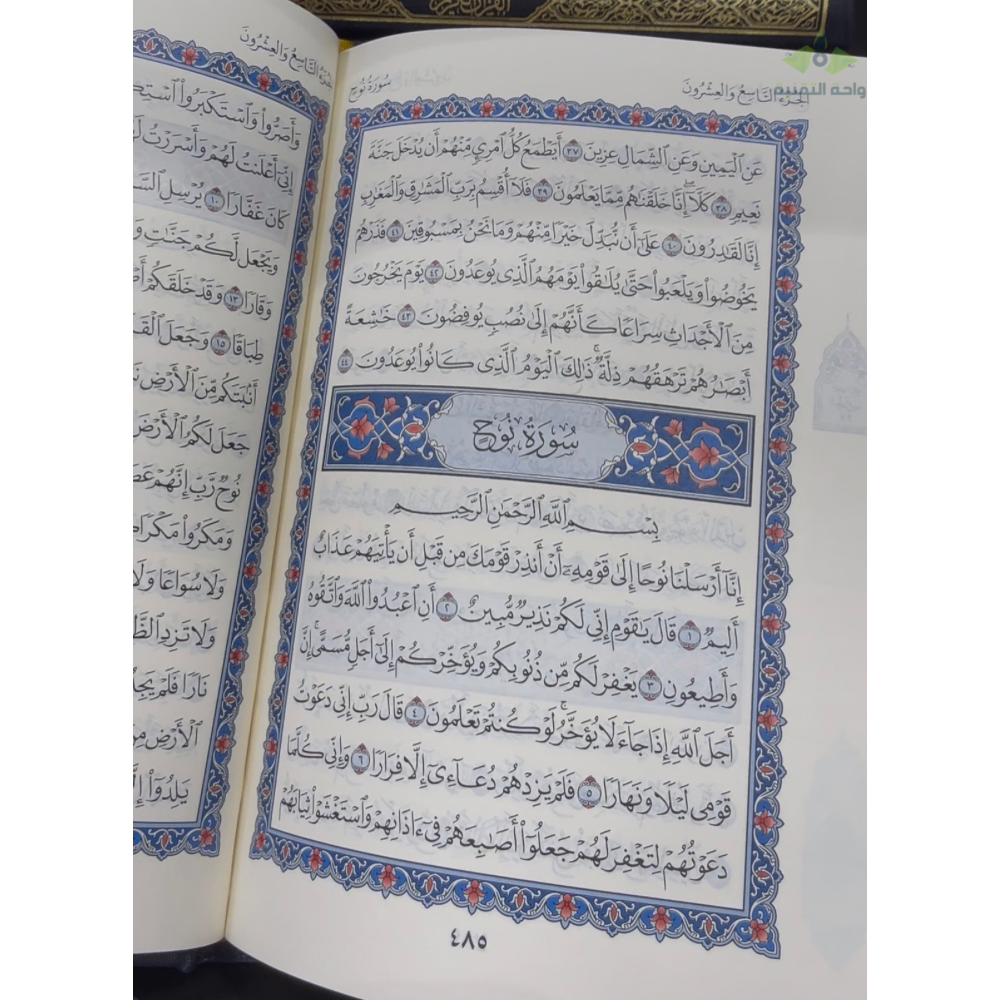 القرآن الكريم
واحة التقنية
الجزء التاسع والعشرون
سورة نوح
عَنِ ٱلْيَمِينِ وَعَنِ ٱلشِّمَالِ عِزِينَ ٣٧ أَيَطْمَعُ كُلُّ ٱمْرِئٍ مِّنْهُمْ أَن يُدْخَلَ جَنَّةَ
نَعِيمٍ ٣٨ كَلَّآ إِنَّا خَلَقْنَٰهُم مِّمَّا يَعْلَمُونَ ٣٩ فَلَآ أُقْسِمُ بِرَبِّ ٱلْمَشَٰرِقِ وَٱلْمَغَٰرِبِ
إِنَّا لَقَٰدِرُونَ ٤٠ عَلَىٰٓ أَن نُّبَدِّلَ خَيْرًا مِّنْهُمْ وَمَا نَحْنُ بِمَسْبُوقِينَ ٤١ فَذَرْهُمْ
يَخُوضُوا۟ وَيَلْعَبُوا۟ حَتَّىٰ يُلَٰقُوا۟ يَوْمَهُمُ ٱلَّذِى يُوعَدُونَ ٤٢ يَوْمَ يَخْرُجُونَ
مِنَ ٱلْأَجْدَاثِ سِرَاعًا كَأَنَّهُمْ إِلَىٰ نُصُبٍ يُوفِضُونَ ٤٣ خَٰشِعَةً
أَبْصَٰرُهُمْ تَرْهَقُهُمْ ذِلَّةٌ ۚ ذَٰلِكَ ٱلْيَوْمُ ٱلَّذِى كَانُوا۟ يُوعَدُونَ ٤٤
سُورَةُ نُوحٍ
بِسْمِ ٱللَّهِ ٱلرَّحْمَٰنِ ٱلرَّحِيمِ
إِنَّآ أَرْسَلْنَا نُوحًا إِلَىٰ قَوْمِهِۦٓ أَنْ أَنذِرْ قَوْمَكَ مِن قَبْلِ أَن يَأْتِيَهُمْ عَذَابٌ
أَلِيمٌ ١ قَالَ يَٰقَوْمِ إِنِّى لَكُمْ نَذِيرٌ مُّبِينٌ ٢ أَنِ ٱعْبُدُوا۟ ٱللَّهَ وَٱتَّقُوهُ
وَأَطِيعُونِ ٣ يَغْفِرْ لَكُم مِّن ذُنُوبِكُمْ وَيُؤَخِّرْكُمْ إِلَىٰٓ أَجَلٍ مُّسَمًّى ۚ إِنَّ
أَجَلَ ٱللَّهِ إِذَا جَآءَ لَا يُؤَخَّرُ ۖ لَوْ كُنتُمْ تَعْلَمُونَ ٤ قَالَ رَبِّ إِنِّى دَعَوْتُ
قَوْمِى لَيْلًا وَنَهَارًا ٥ فَلَمْ يَزِدْهُمْ دُعَآءِىٓ إِلَّا فِرَارًا ٦ وَإِنِّى كُلَّمَا
دَعَوْتُهُمْ لِتَغْفِرَ لَهُمْ جَعَلُوٓا۟ أَصَٰبِعَهُمْ فِىٓ ءَاذَانِهِمْ وَٱسْتَغْشَوْا۟ ثِيَابَهُمْ
٤٨٥
الجزء التاسع والعشرون
وَأَصَرُّوا۟ وَٱسْتَكْبَرُوا۟
إِنِّىٓ أَعْلَنتُ لَهُمْ وَأَسْرَرْتُ
كَانَ غَفَّارًا ١٠ يُرْسِلِ
وَيَجْعَل لَّكُمْ جَنَّٰتٍ
وَقَارًا ١٣ وَقَدْ خَلَقَكُمْ
طِبَاقًا ١٥ وَجَعَلَ
أَنۢبَتَكُم مِّنَ ٱلْأَرْضِ
جَعَلَ لَكُمُ ٱلْأَرْضَ
نُوحٌ رَّبِّ إِنَّهُمْ
وَمَكَرُوا۟ مَكْرًا
وَلَا سُوَاعًا
وَلَا تَزِدِ
نَارًا فَلَمْ
ٱلْأَرْضِ
يَلِدُوٓا۟